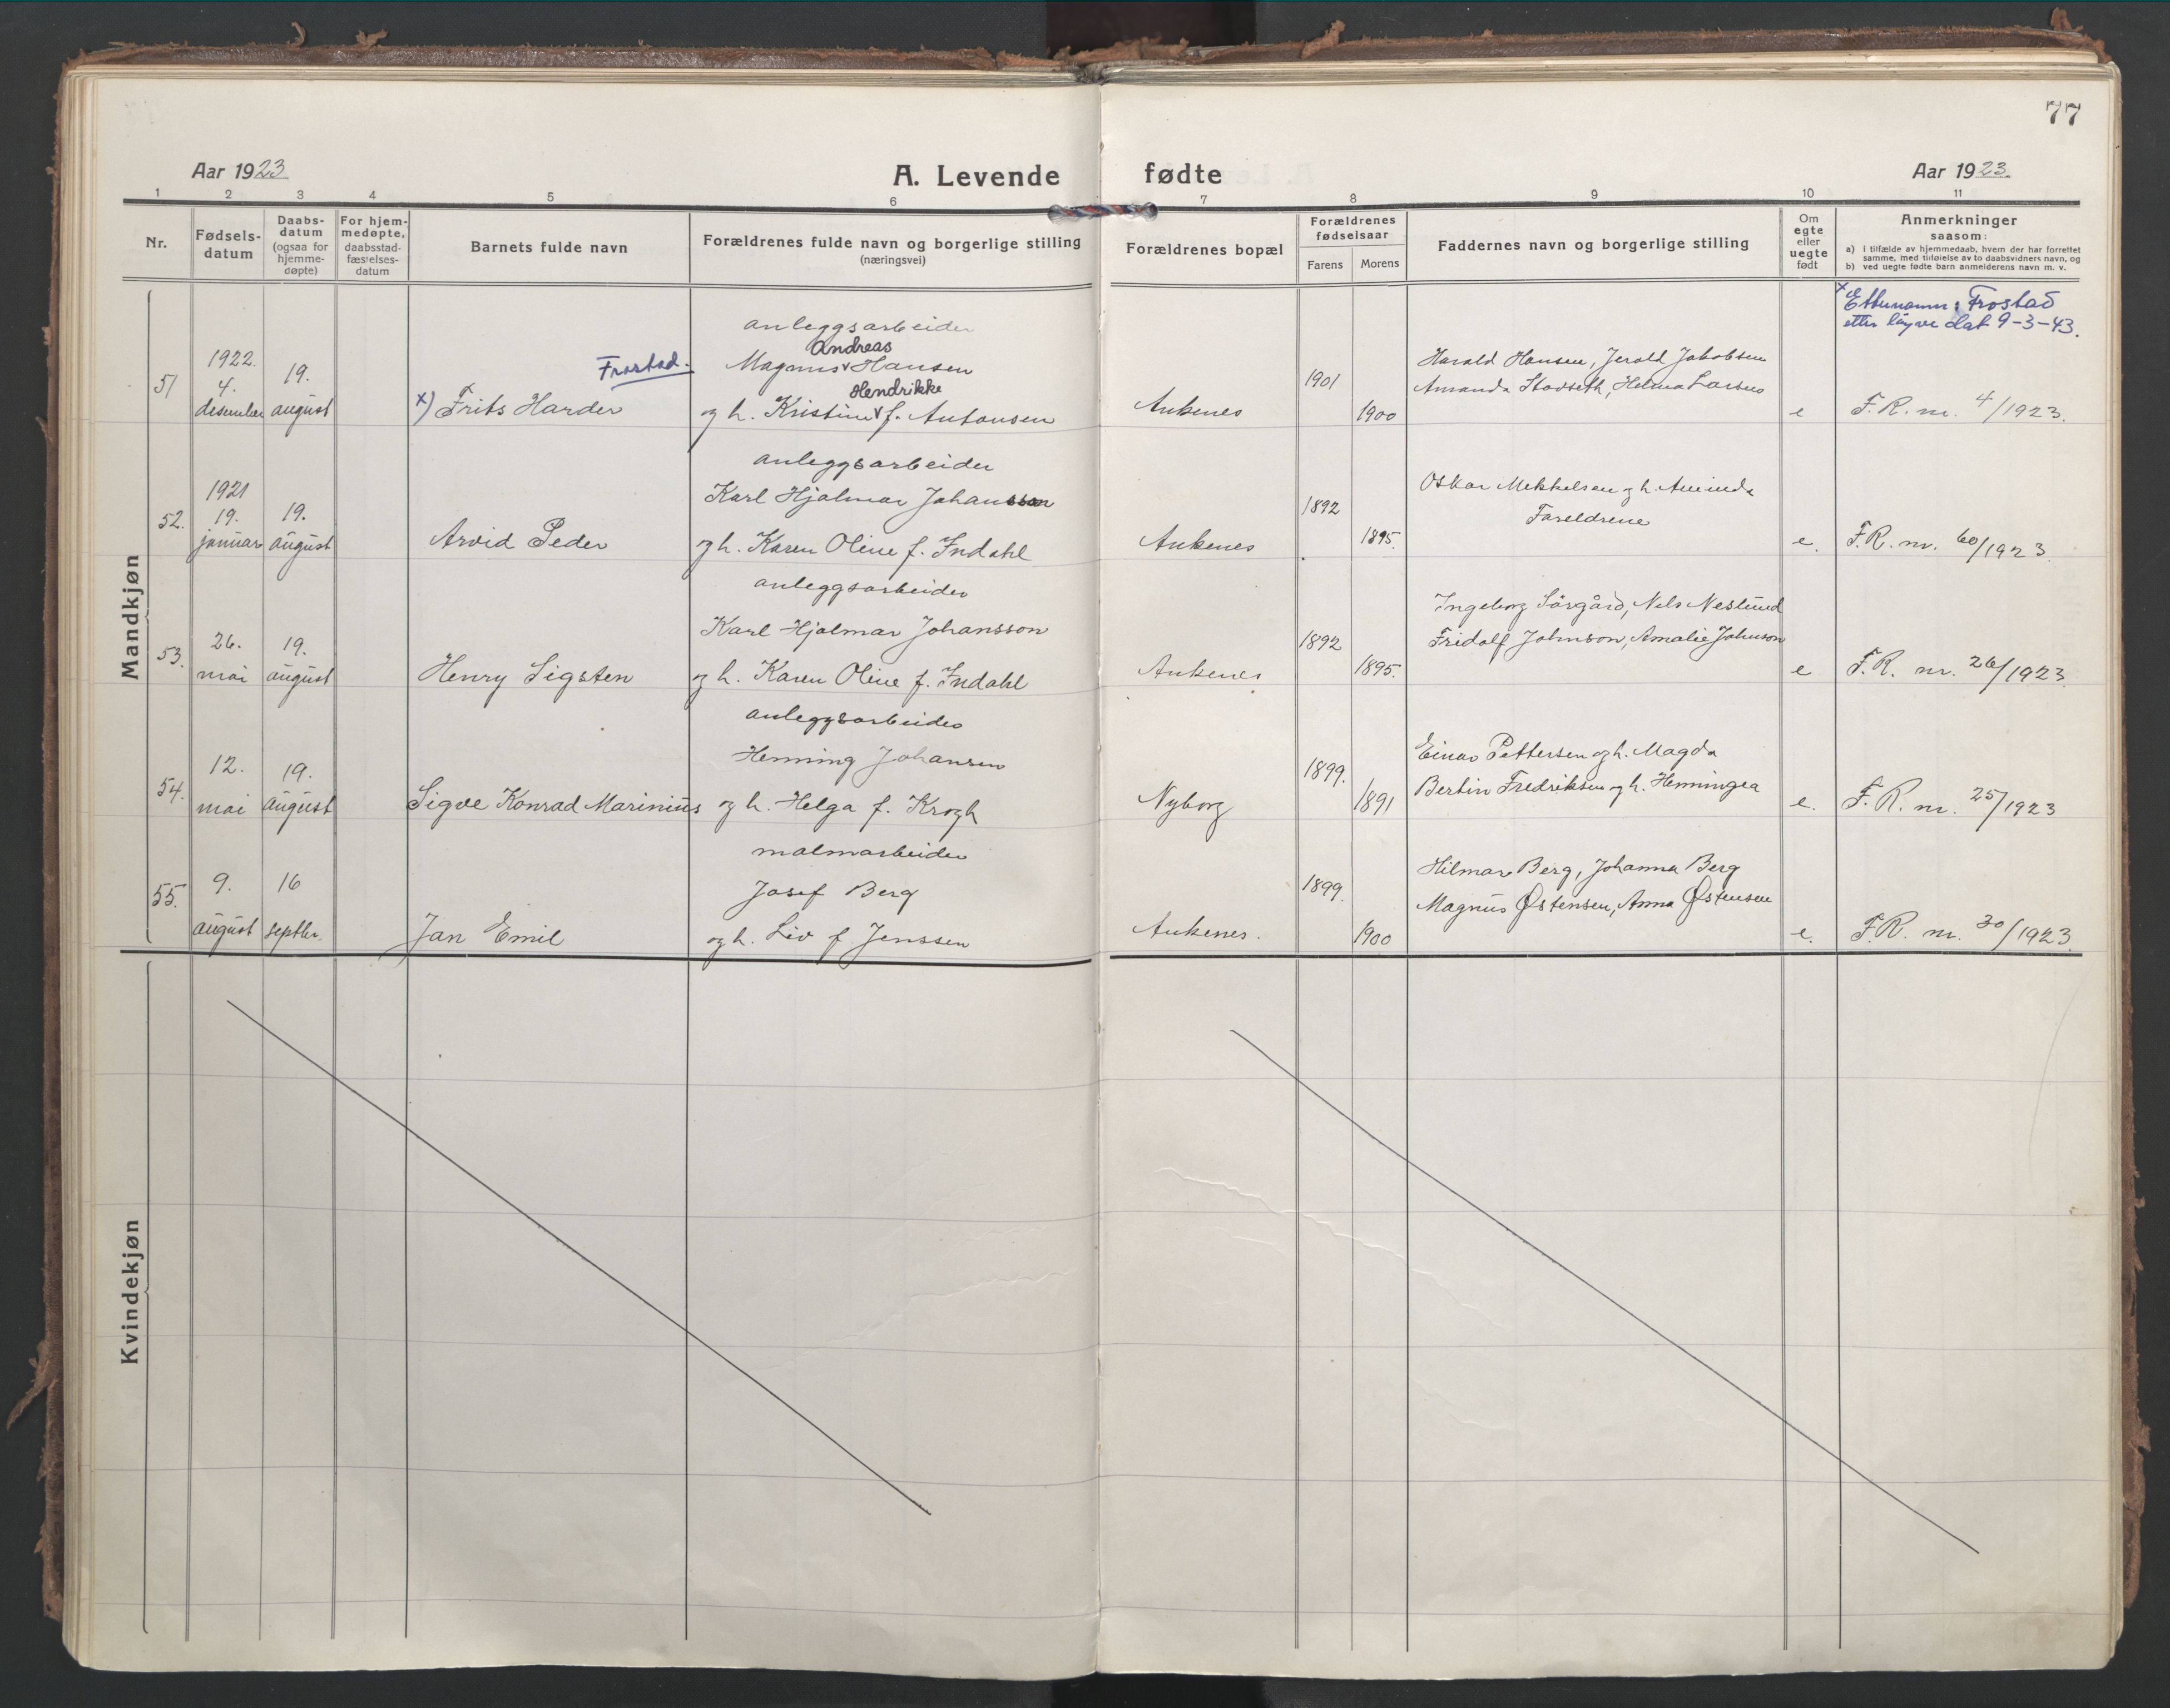 77
Aar 1923.
A. Levende
fødte
Aar 1923.
1 2 3 4 5 6 7 8 9 10 11
Nr.
Fødsels-
datum
Daabs-
datum
(ogsaa for
hjemme-
døpte)
For hjem-
medøpte,
daabsstad-
fæstelses-
datum
Barnets fulde navn
Forældrenes fulde navn og borgerlige stilling
(næringsvei)
Forældrenes bopæl
Forældrenes
fødselsaar
Farens
Morens
Faddernes navn og borgerlige stilling
Om
egte
eller
uegte
født
Anmerkninger
saasom:
a) i tilfælde av hjemmedaab, hvem der har forrettet
samme, med tilføielse av to daabsvidners navn, og
b) ved uegte fødte barn anmelderens navn m. v.
Mandkjøn
51
1922.
4.
desember
19.
august
x) Frits Harder
Frostad.
anleggsarbeider
Andreas
Magnus v Hansen
Hendrikke
og h. Kristine v f. Antonsen
Ankenes
1901
1900
Harald Hansen, Jerald Jakobsen
Amanda Stovseth, Helma Larsen
e
x Etternamn: Frostad
etter løyve dat 9-3-43.
F.R. nr. 4/1923.
52.
1921
19.
januar
19.
august
Arvid Peder
anleggsarbeider
Karl Hjalmar Johansson
og h. Karen Oline f. Indahl
Ankenes
1892
1895.
Oskar Mikkelsen og h. Aminda
Foreldrene
e.
F.R. nr. 60/1923.
53.
26.
mai
19.
august
Henry Sigsten
anleggsarbeider
Karl Hjalmar Johansson
og h. Karen Oline f. Indahl
Ankenes
1892
1895.
Ingeborg Sørgård, Nils Neslund
Fridolf Johnson, Amalie Johnson
e
F.R. nr. 26/1923.
54.
12.
mai
19.
august
Sigve Konrad Marinius
anleggsarbeider
Henning Johansen
og h. Helga f. Krogh
Nyborg
1899.
1891
Einar Pettersen og h. Magda
Bertin Fredriksen og h. Henningea
e.
F.R. nr. 25/1923
55.
9.
august
16
septbr.
Jan Emil
malmarbeider
Josef Berg
og h. Liv f. Jenssen
Ankenes.
1899.
1900
Hilmar Berg, Johanna Berg
Magnus Østensen, Anna Østensen
e.
F.R. nr. 30/1923.
Kvindekjøn